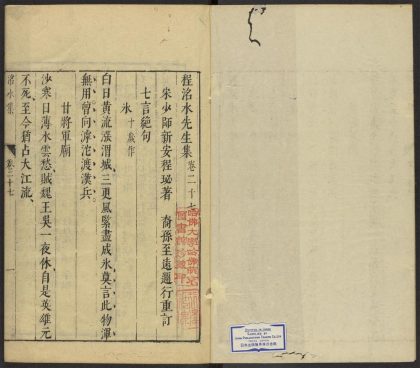 程洺水先生集卷二十七
宋少師新安程珌著 裔孫至遠邇行重訂
七言絕句
氷 十歲作
白日黄流漲渭城三更風緊盡成氷莫言此物渾
無用曾向滹沱渡漢兵
甘將軍廟
沙寒日薄水雲愁賊魏王吳一夜休自是英雄元
不死至今猶占大江流
洺水集 卷二十七
哈佛大學哈佛燕京
圖書館珍藏印